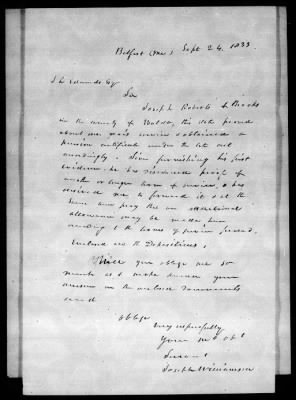 Belfast (Me.) Sept 24. 1833
J L Edwards Esq
Sir
Joseph Roberts of Brooks
in the county of Waldo, this date proved
about one year's service & obtained a
pension certificate under the late act
accordingly. Since furnishing his first
evidence he has discovered proof of
another or longer term of service, & has
desired me to forward it to the
and pray that an additional
allowance may be made him
according to the terms of service proved.
Enclosed are the Depositions,
Will you oblige me so
much as to make known your
on the enclosed documents
and
oblige
very respectfully
Your mo obt
Servant
Joseph Williamson